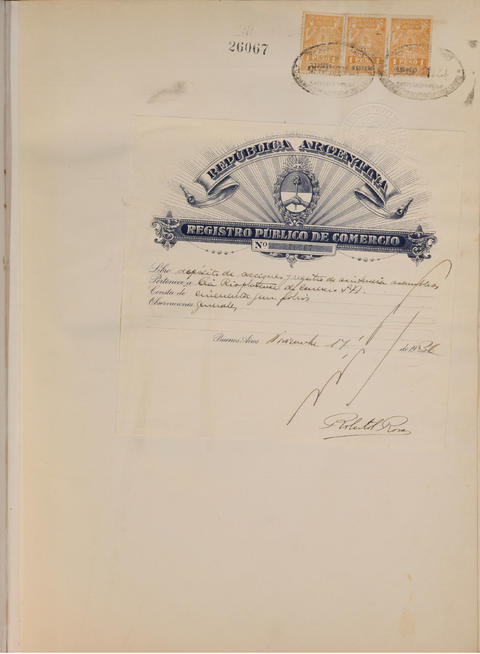 26067
1 PESO 1
1 PESO 1
1 PESO 1
REPÚBLICA ARGENTINA
REGISTRO PÚBLICO DE COMERCIO
Nº
Libro depósito de acciones y registro de asistencia asambleas
Pertenece a Cía Rioplatense de S.A.
Consta de cincuenta folios
Observaciones generales
Buenos Aires Noviembre 17 de 1936
Roberto Rosa